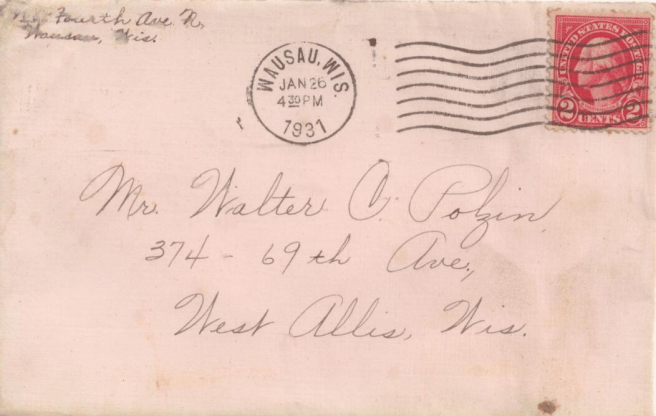 Fourth Ave N,
Wausau, Wis.
WAUSAU, WIS.
JAN 26
4 30 PM
1931
UNITED STATES POSTAGE
2 CENTS 2
Mr. Walter C. Polzin,
374 - 69th Ave.,
West Allis, Wis.